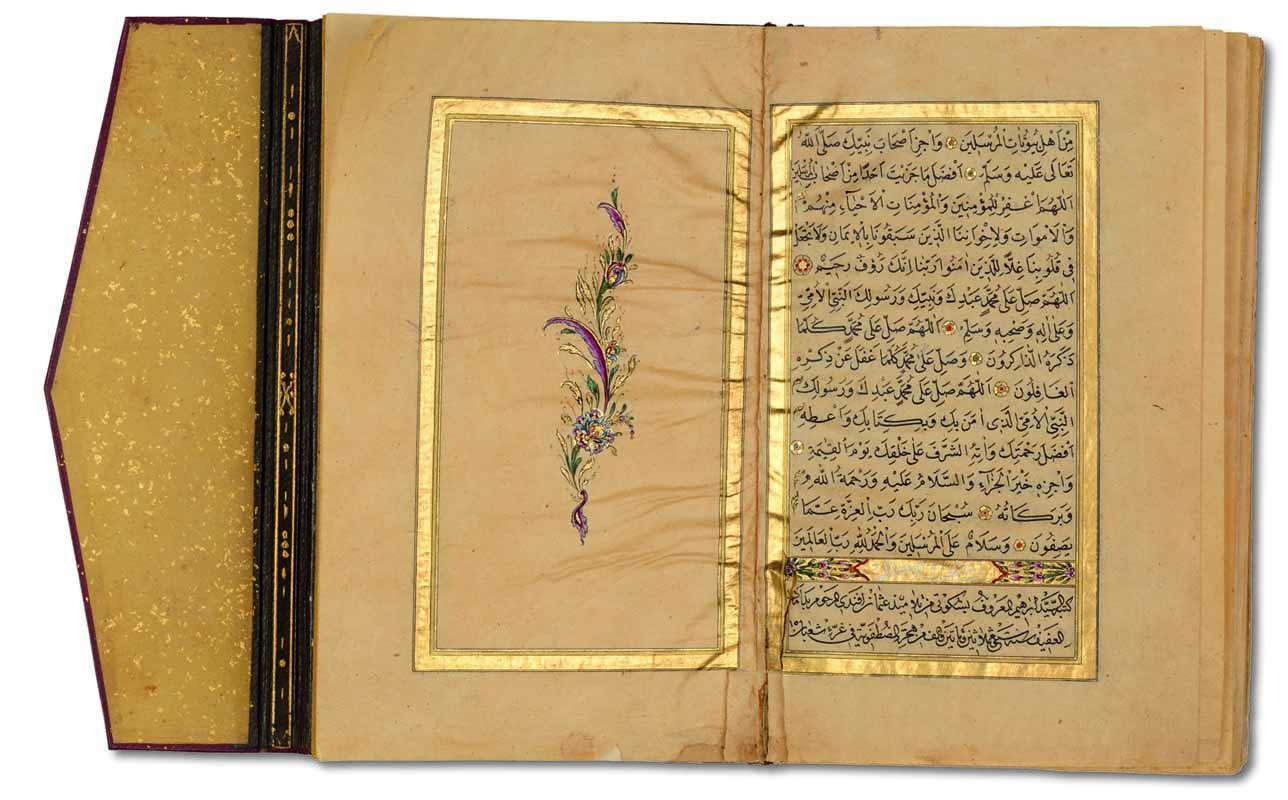 مِنْ اَهْلِ بُيُوتَاتِ الْمُرْسَلِينَ وَاجْزِ اَصْحَابَ نَبِيِّكَ صَلَّى اللهُ
تَعَالَى عَلَيْهِ وَسَلَّمَ اَفْضَلَ مَا جَزَيْتَ اَحَدًا مِنْ اَصْحَابِ الْمُرْسَلِينَ
اَللّٰهُمَّ اغْفِرْ لِلْمُؤْمِنِينَ وَالْمُؤْمِنَاتِ الْاَحْيَاءِ مِنْهُمْ
وَالْاَمْوَاتِ وَلِاِخْوَانِنَا الَّذِينَ سَبَقُونَا بِالْاِيمَانِ وَلَا تَجْعَلْ
فِى قُلُوبِنَا غِلًّا لِلَّذِينَ اٰمَنُوا رَبَّنَا اِنَّكَ رَؤُفٌ رَحِيمٌ
اَللّٰهُمَّ صَلِّ عَلَى مُحَمَّدٍ عَبْدِكَ وَنَبِيِّكَ وَرَسُولِكَ النَّبِيِّ الْاُمِّيِّ
وَعَلَى اٰلِهِ وَصَحْبِهِ وَسَلِّمْ اَللّٰهُمَّ صَلِّ عَلَى مُحَمَّدٍ كُلَّمَا
ذَكَرَهُ الذَّاكِرُونَ وَصَلِّ عَلَى مُحَمَّدٍ كُلَّمَا غَفَلَ عَنْ ذِكْرِهِ
الْغَافِلُونَ اَللّٰهُمَّ صَلِّ عَلَى مُحَمَّدٍ عَبْدِكَ وَرَسُولِكَ
النَّبِيِّ الْاُمِّيِّ الَّذِى اٰمَنَ بِكَ وَبِكِتَابِكَ وَاَعْطِهِ
اَفْضَلَ رَحْمَتِكَ وَاٰتِهِ الشَّرَفَ عَلَى خَلْقِكَ يَوْمَ الْقِيٰمَةِ
وَاجْزِهِ خَيْرَ الْجَزَاءِ وَالسَّلَامُ عَلَيْهِ وَرَحْمَةُ اللهِ
وَبَرَكَاتُهُ سُبْحَانَ رَبِّكَ رَبِّ الْعِزَّةِ عَمَّا
يَصِفُونَ وَسَلَامٌ عَلَى الْمُرْسَلِينَ وَالْحَمْدُ لِلّٰهِ رَبِّ الْعَالَمِينَ
كتبه السيد ابرهيم المعروف من تلاميذ عثمان افندى المرحوم
العفيف سنة ثلاثين ومأتين والف من هجرة المصطفوية فى غرة شعبان